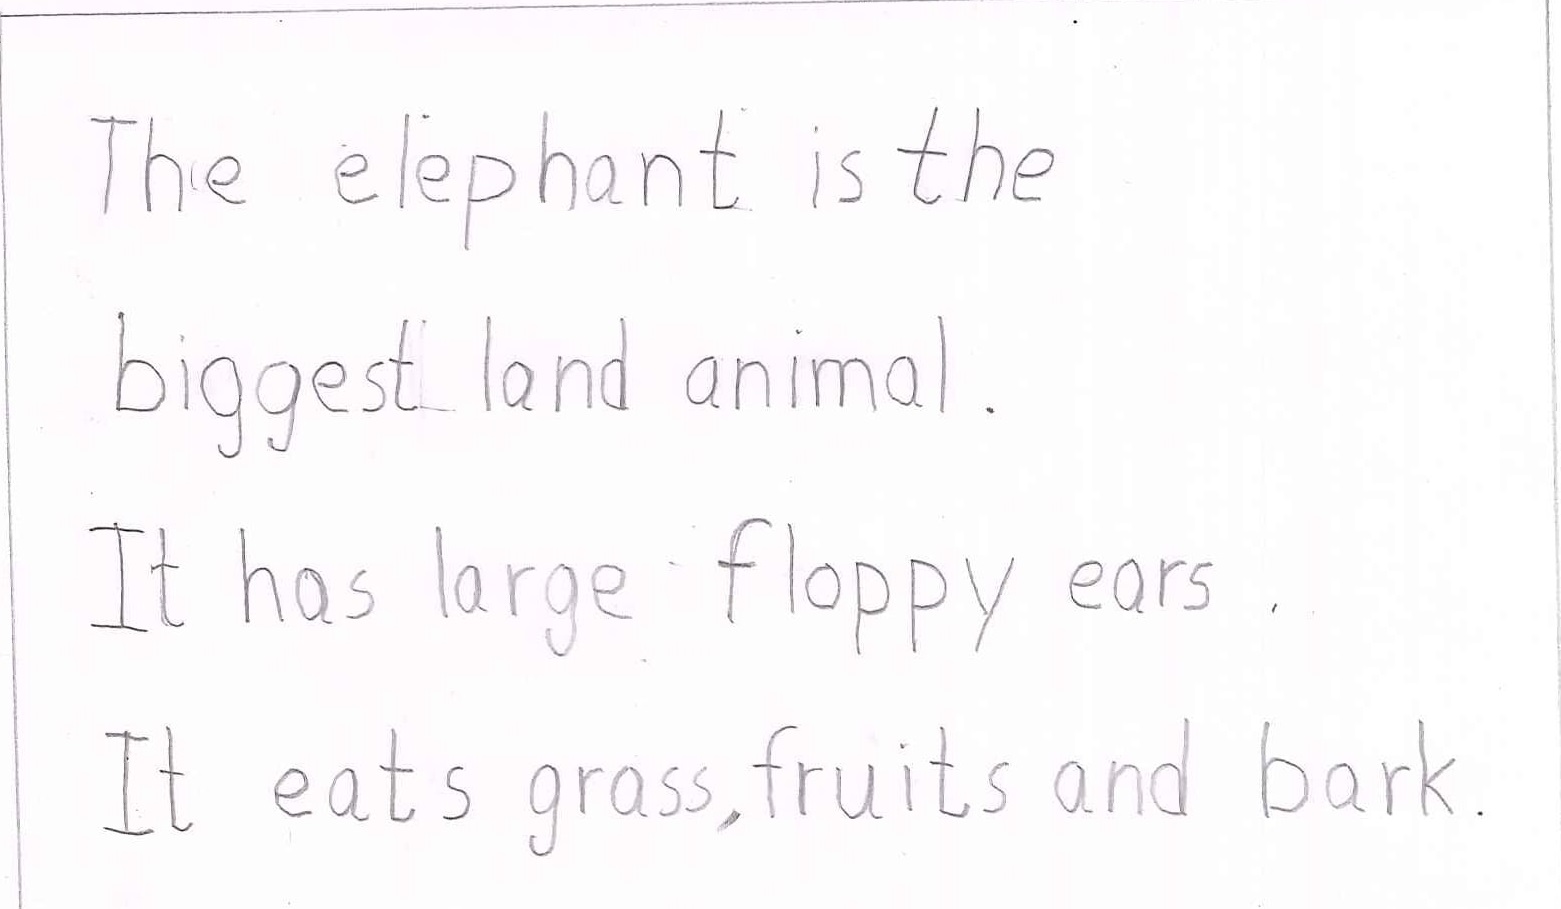 The elephant is the
biggest land animal.
It has large floppy ears.
It eats grass, fruits and bark.